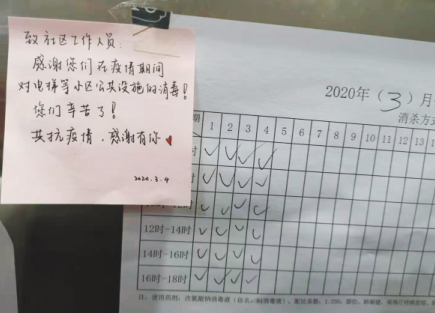 致社区工作人员:
感谢您们在疫情期间
对电梯等小区公共设施的消毒!
您们辛苦了!
共抗疫情,感谢有你♥
2020.3.4
2020年(3)月
消杀方式
1 2 3 4 5 6 7 8 9 10 11 12 13 14
时
时
时
12时-14时
14时-16时
16时-18时
注：使用药剂：次氯酸钠消毒液